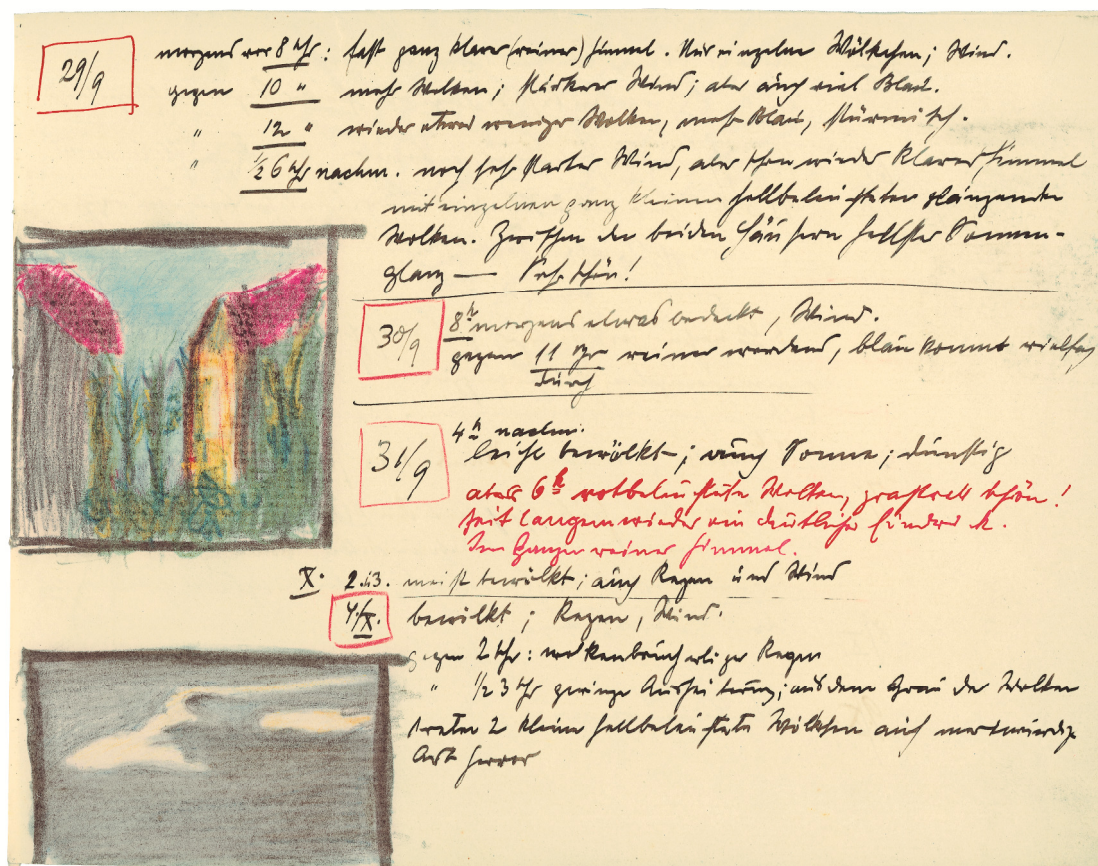 29/9 morgens vor 8 Uhr: fast ganz klarer (reiner) Himmel. Nur einzelne Wölkchen; Wind.
gegen 10 " mehr Wolken; stärkerer Wind; aber auch viel Blau.
" 12 " wieder etwas weniger Wolken, mehr Blau, stürmisch.
" ½ 6 Uhr nachm. noch sehr starker Wind, aber schon wieder klarer Himmel
mit einzelnen ganz kleinen hellbeleuchteten glänzenden
Wolken. Zwischen den beiden Häusern hellster Sonnen-
glanz — Sehr schön!
30/9 8h morgens etwas bedeckt, Wind.
gegen 11 Uhr reiner werdend, blau kommt vielfach
durch
31/9 4h nachm.
leicht bewölkt; auch Sonne; dunstig
aber 6h rotbeleuchtete Wolken, prachtvoll schön!
seit langem wieder ein deutlicher Eindruck.
Im Ganzen reiner Himmel.
X. 2.u3. meist bewölkt; auch Regen und Wind
4./X. bewölkt; Regen, Wind.
gegen 2 Uhr: wolkenbruchartiger Regen
" ½ 3 Uhr geringe Aufheiterung; aus dem Grau der Wolken
treten 2 kleine hellbeleuchtete Wölkchen auf merkwürdige
Art hervor